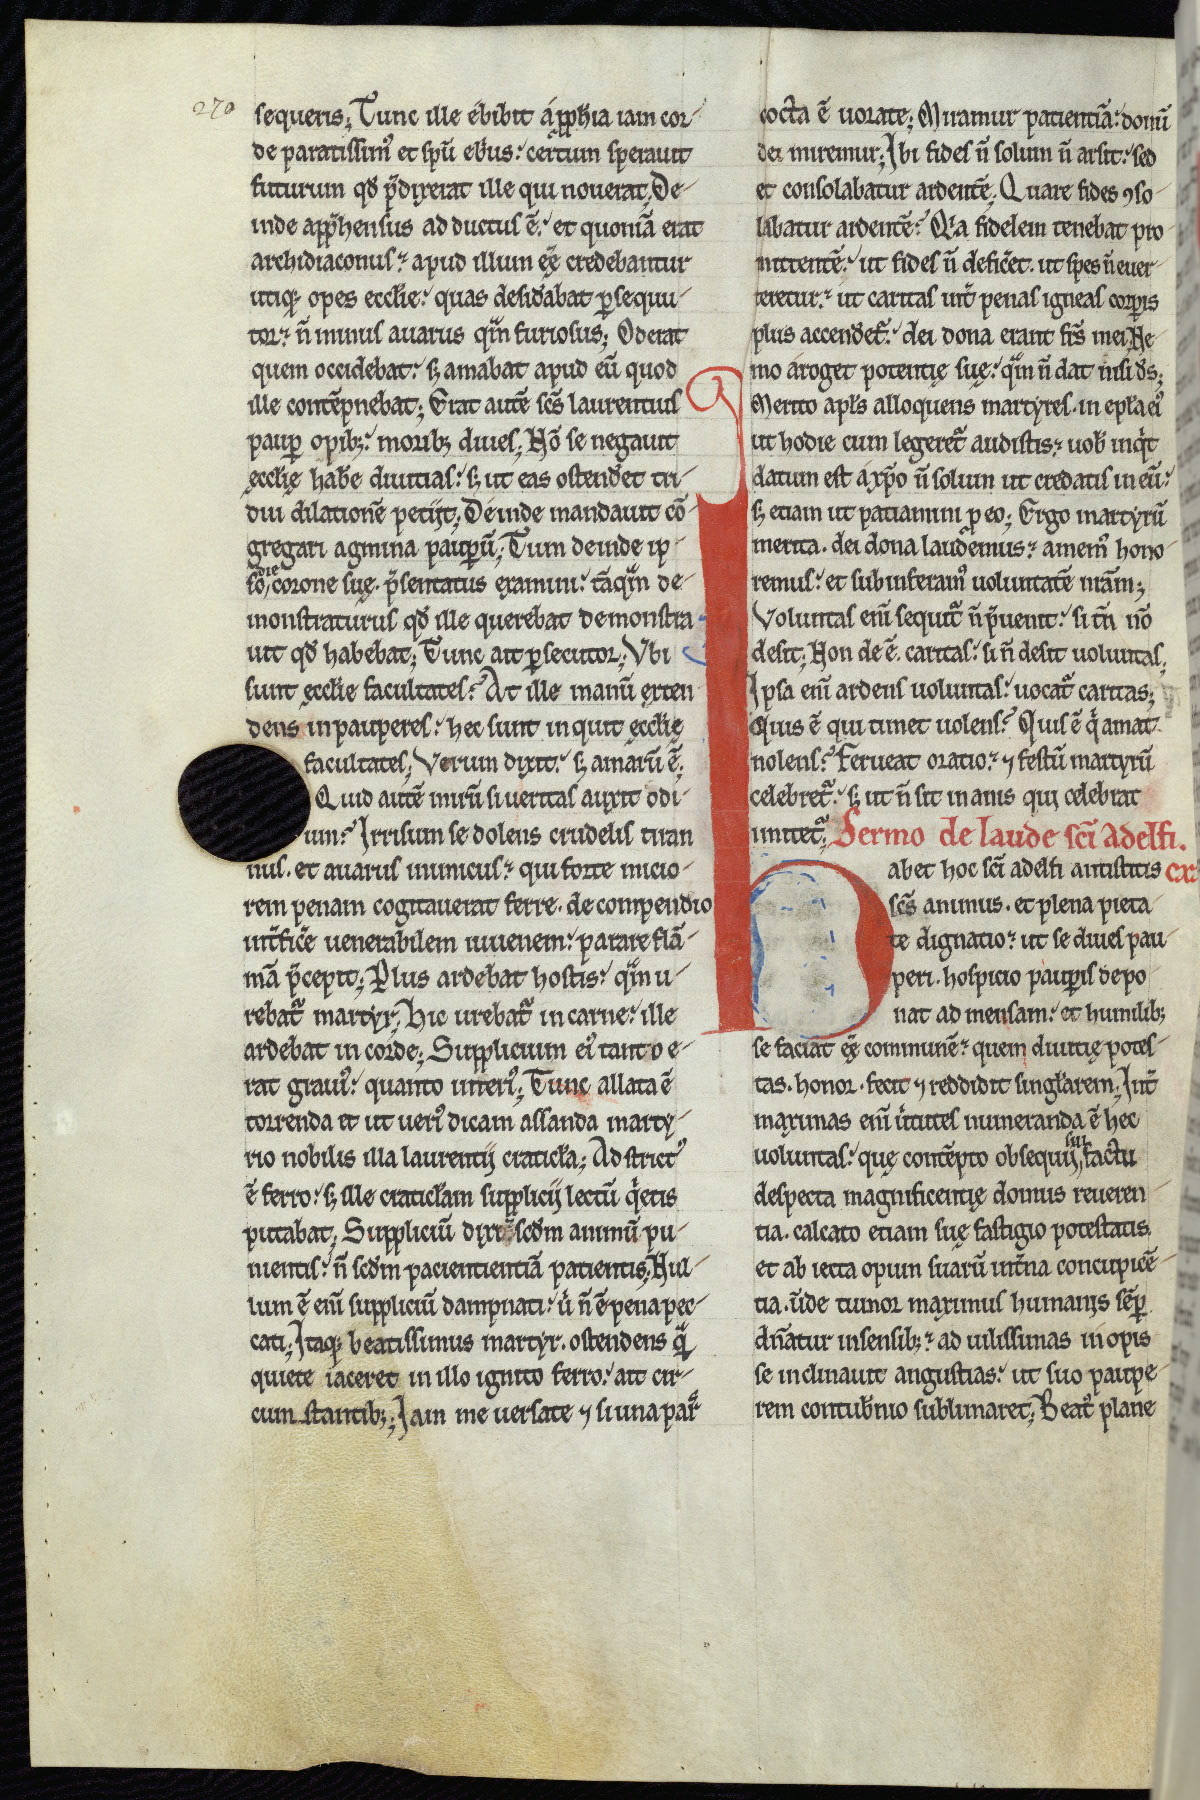 270
sequeris; Tunc ille ebibit apphia iam cor-
de paratissim᷒ et spũ ebrius: certum sperauit
futurum qđ p̃dixerat ille qui nouerat; De-
inde app̃hensus adductus ẽ: et quoniã erat
archidiaconus: apud illium eẽ credebantur
utiq; opes eccłie: quas desiđabat ꝑsequu-
tor: ñ minus auarus qm̃ furiosus; Oderat
quem occidebat: sꝫ amabat apud eũ quod
ille contẽpnebat; Erat autẽ scs̃ laurentius
pauꝑ opibꝫ: moribꝫ diues; Nõ se negauit
ęccłię habe diuitias: sꝫ ut eas ostendet tri-
dui dilationẽ petijt; Deinde mandauit cõ-
gregari agmina pauꝑũ; Tum deinde ip-
so die corone suę. p̃sentatus examini: tãqm̃ de-
monstraturus qđ ille querebat demonstra
uit qđ habebat; Tunc ait ꝑsecutor; Vbi
sunt ęccłie facultates? At ille manũ exten
dens in pauperes: hec sunt inquit ęccłię
facultates; Verum dixit: sꝫ amarũ ẽ;
Quid autẽ mirũ si ueritas auxit odi-
um? Irrisum se dolens crudelis tiran
nus. et auarus inimicus: qui forte micio-
rem penam cogitauerat ferre. de compendio
int̃fice uenerabilem iuuenem: parare flã-
mã p̃cepit; Plus ardebat hostis: qm̃ u-
rebat᷑ martyr; Hic urebat᷑ in carne: ille
ardebat in corde; Supplicium ei᷒ tanto e-
rat graui᷒: quanto interi᷒; Tunc allata ẽ
torrenda et ut ueri᷒ dicam assanda marty-
rio nobilis illa laurentij craticła; Adstrict᷒
ẽ ferro: sꝫ ille craticłam supplicij lectũ q̇etis
putabat; Suppliciũ dixi scđm animũ pu-
nientis: ñ scđm pacientientiã patientis; Nul-
lum ẽ enĩ suppliciũ dampnati: ů ñ ẽ pena pec-
cati; Itaq; beatissimus martyr. ostendens q̃
quiete iaceret in illo ignito ferro: ait cir-
cum stantibꝫ; Iam me uersate ⁊ si una par᷑
cocta ẽ uorate; Miramur patientiã: donũ
dei miremur; Ibi fides ñ solum ñ arsit: sed
et consolabatur ardentẽ; Quare fides ꝯso-
labatur ardentẽ? Qa fidelem tenebat pro-
mittentẽ: ut fides ñ deficet. ut spes ñ euer-
teretur: ut caritas int̃ penas igneas corpis
plus accendet᷑: dei dona erant frs̃ mei; Ne-
mo aroget potentię suę: qm̃ ñ dat nisi đs;
Merito apłs alloquens martyres. in epła ei᷒
ut hodie cum legeret᷑ audistis: uob inqt
datum est a xp̃o ñ solum ut credatis in eũ:
sꝫ etiam ut patiamini ꝓ eo; Ergo martyrũ
merita. dei dona laudemus: amem᷒ hono-
remus: et subinferam᷒ uoluntatẽ nr̃am;
Voluntas enĩ sequit᷑ ñ p̃uenit: si tñ nõ
desit; Non de ẽ. caritas: si ñ desit uoluntas;
Ipsa enĩ ardens uoluntas: uocat᷑ caritas;
Quis ẽ qui timet uolens? Quis ẽ q̇ amat
nolens? Ferueat oratio: ⁊ festũ martyrũ
celebret᷑: sꝫ ut ñ sit inanis qui celebrat
imitet᷑; Sermo de laude scĩ Adelfi.
Habet hoc scĩ adelfi antistitis cx
scs̃ animus. et plena pieta-
te dignatio: ut se diues pau-
peri. hospicio pauꝑis depo-
nat ad mensam: et humilibꝫ
se faciat eẽ communẽ: quem diuitię potes-
tas. honor. fecit ⁊ reddidit singłarem; Int̃
maximas enĩ ůtutes numeranda ẽ hec
uoluntas: quę contẽpto obsequij sui factu
despecta magnificentię domus reueren-
tia. calcato etiam suę fastigio potestatis
et abiecta opum suarũ int̃na concupicẽ-
tia. ůde tumor maximus humanis sẽꝑ
dñatur insensibꝫ: ad uilissimas inopis
se inclinauit angustias: ut suo paupe-
rem contub̃nio sublimaret; Beat᷒ plane